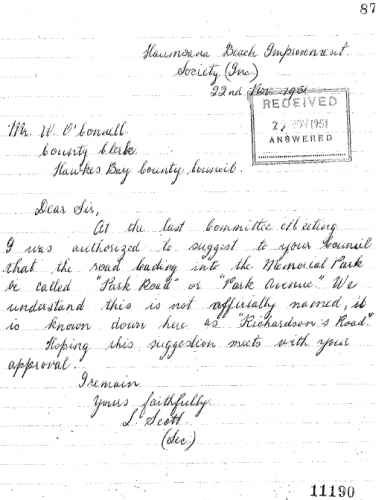 87
Haumoana Beach Improvement
Society (Inc.)
22nd Nov. 1951
RECEIVED
NOV 1951
ANSWERED
Mr. W. O'Connell
County Clerk
Hawkes Bay County Council.
Dear Sir,
At the last Committee Meeting
I was authorized to suggest to your Council
that the road leading into the Memorial Park
be called "Park Road" or "Park Avenue." We
understand this is not officially named, it
is known down here as "Richardson's Road."
Hoping this suggestion meets with your
approval.
I remain
Yours faithfully
L. Scott
(Sec.)
11190